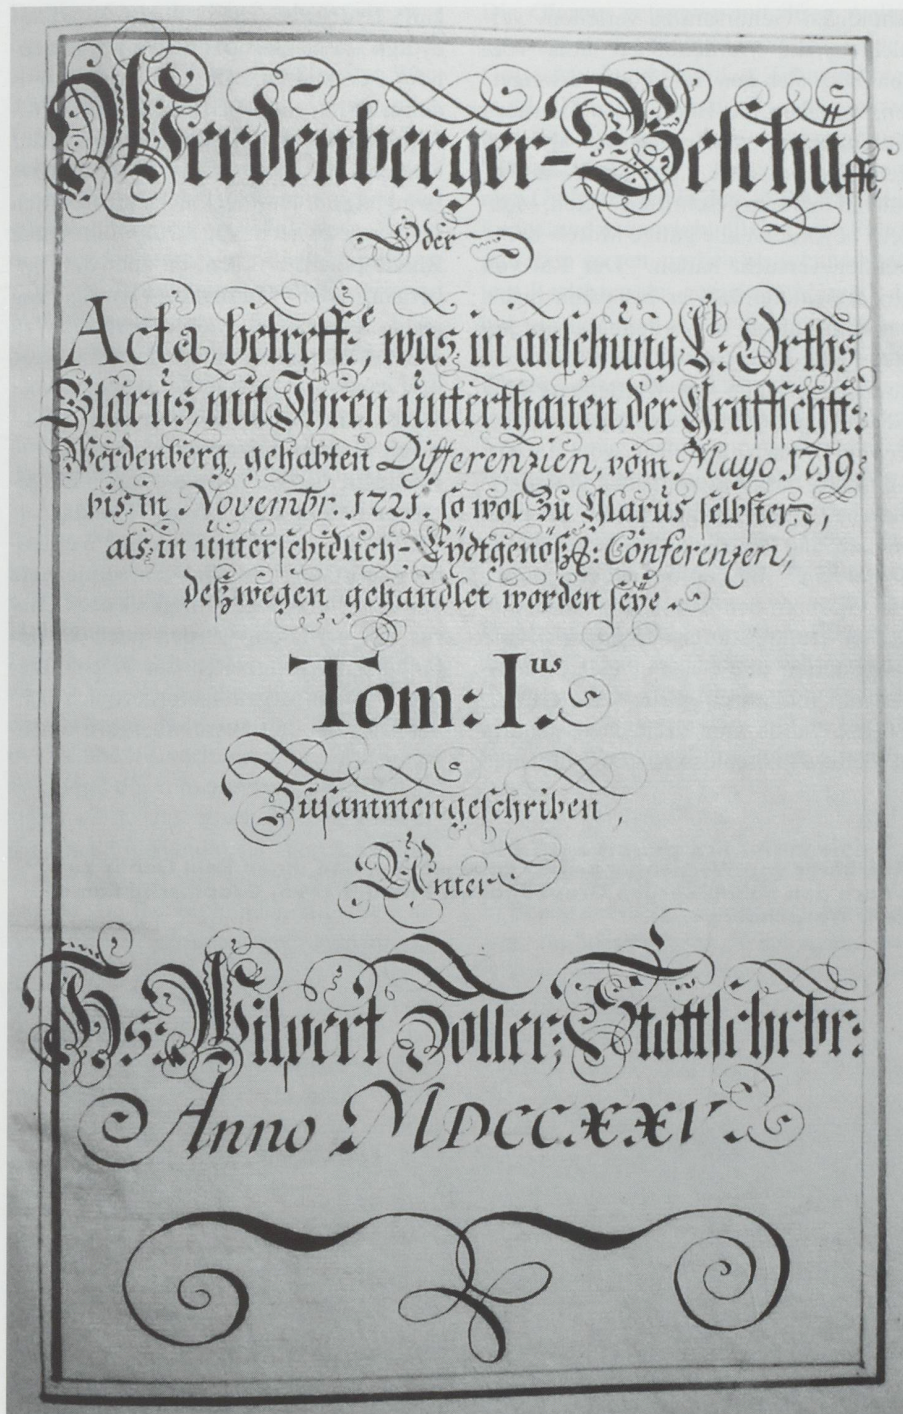 Werdenberger-Geschäfft,
Oder
Acta, betreff:e, was in ansehung L: Orths
Glarus, mit Ihren unterthanen der Graffschfft:
Werdenberg, gehabten Differenzien, vom Mayo 1719:
bis in Novembr. 1721. so wol zu Glarus selbsten,
als in unterschidlich-Eydtgenößß: Conferenzen,
deßwegen gehandlet worden seye.
Tom: I.us
Zusammengeschriben,
Unter
Hs: Wilpert Zoller, Stattschrbr:
Anno MDCCXXV.